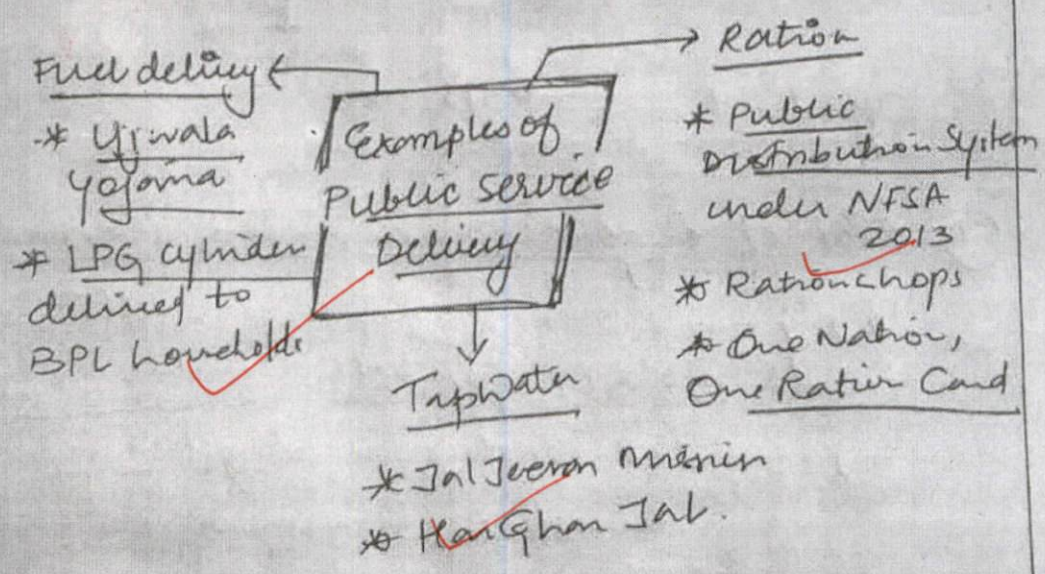 Fuel delivery
* Ujjwala
Yojana
* LPG cylinder
delivered to
BPL households
Examples of
Public Service
Delivery
Ration
* Public
Distribution System
under NFSA
2013
* Ration shops
* One Nation,
One Ration Card
Tap Water
* Jal Jeevan Mission
* Har Ghar Jal.